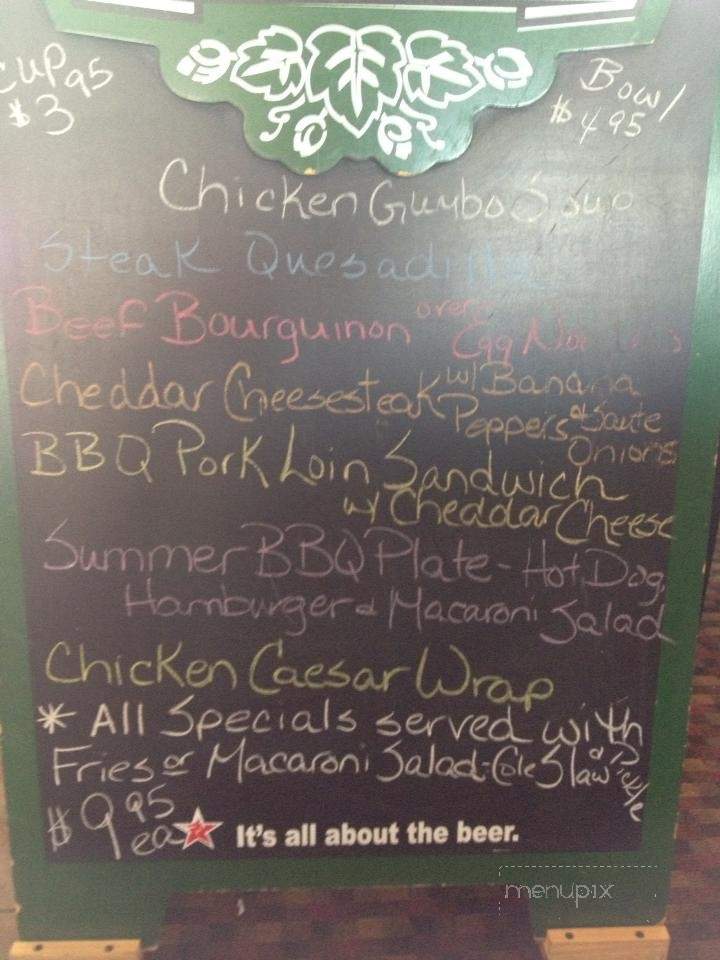 Cup 95
$3
Bowl
$4.95
Chicken Gumbo Soup
Steak Quesadilla
Beef Bourguinon over
Egg Noodles
Cheddar Cheesesteak w/ Banana
Peppers & Saute
Onions
BBQ Pork Loin Sandwich
w/ Cheddar Cheese
Summer BBQ Plate - Hot Dog,
Hamburger & Macaroni Salad
Chicken Caesar Wrap
* All Specials served with
Fries or Macaroni Salad-Cole Slaw & Pickle
$9.95
ea
It's all about the beer.
menupix